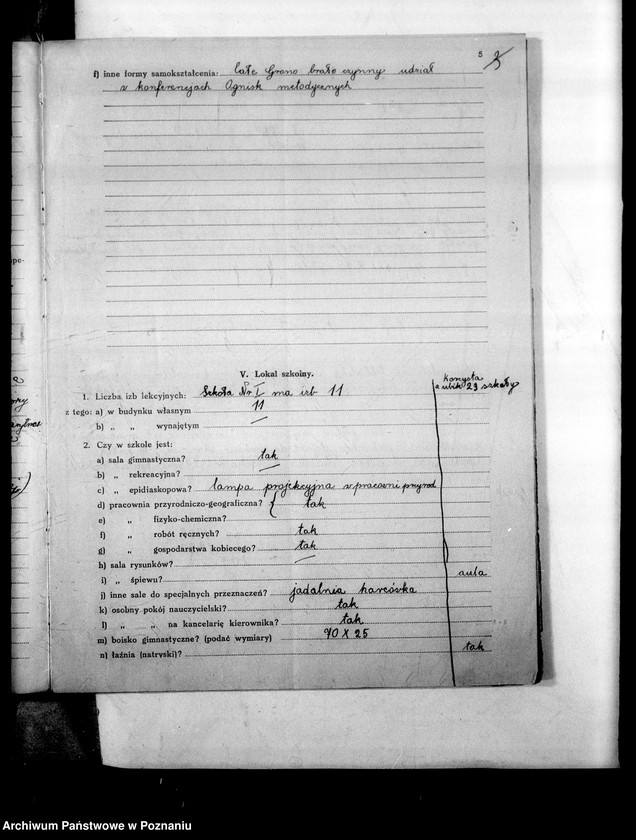 5
f) inne formy samokształcenia: całe Grono brało czynny udział
w konferencjach Ognisk metodycznych
V. Lokal szkolny.
Korzysta
szkoły
1. Liczba izb lekcyjnych: Szkoła Nr I ma izb 11
z tego: a) w budynku własnym 11
b) „ „ wynajętym —
2. Czy w szkole jest:
a) sala gimnastyczna? tak
b) „ rekreacyjna? —
c) „ epidiaskopowa? lampa projekcyjna w pracowni przyrod
d) pracownia przyrodniczo-geograficzna? { tak
e) „ fizyko-chemiczna?
f) „ robót ręcznych? tak
g) „ gospodarstwa kobiecego? tak
h) sala rysunków? —
i) „ śpiewu? aula
j) inne sale do specjalnych przeznaczeń? jadalnia harcówka
k) osobny pokój nauczycielski? tak
l) „ „ na kancelarię kierownika? tak
m) boisko gimnastyczne? (podać wymiary) 70 X 25
n) łaźnia (natryski)? tak
Archiwum Państwowe w Poznaniu